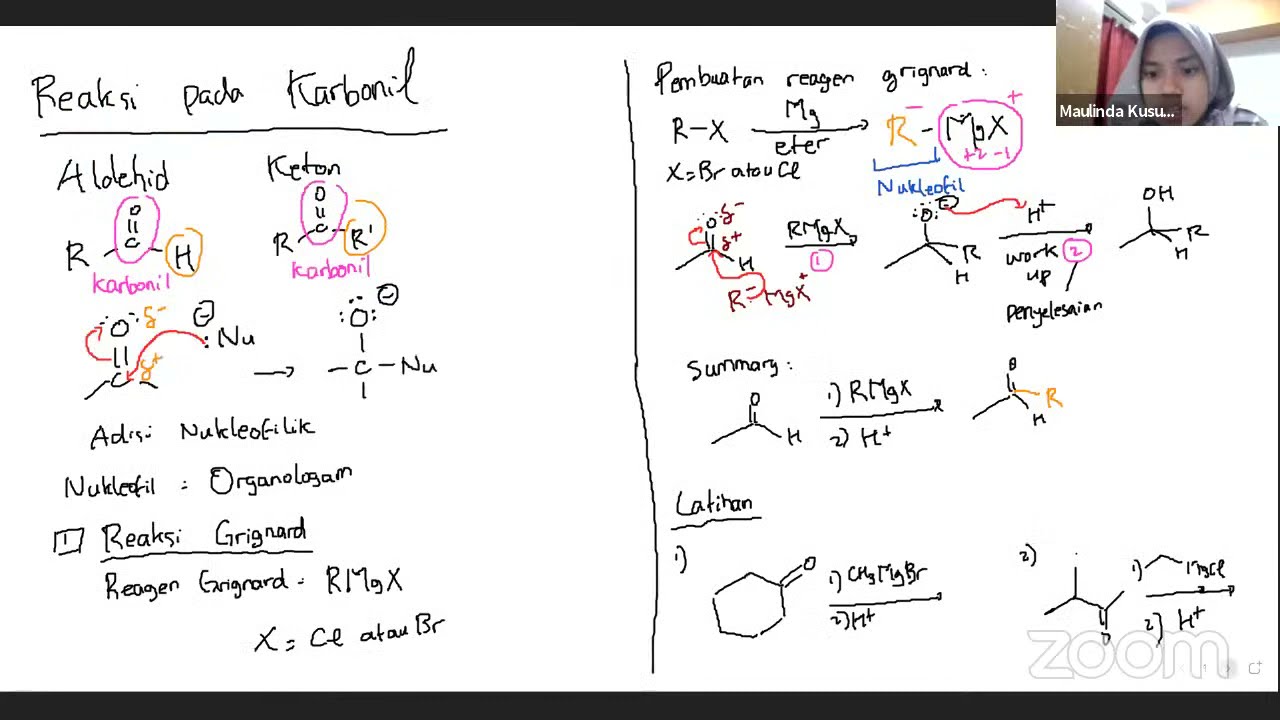 Reaksi pada Karbonil
Aldehid
Keton
O
O
C
C
R
H
R
R'
karbonil
karbonil
O δ-
⊖
:Nu
C δ+
→
:O: ⊖
- C - Nu
Adisi Nukleofilik
Nukleofil = Organologam
1 Reaksi Grignard
Reagen Grignard = RMgX
X = Cl atau Br
Pembuatan reagen grignard :
R-X
Mg
eter
R- - MgX +
+2 -1
X = Br atau Cl
Nukleofil
O δ-
δ+
H
R- MgX+
RMgX
1
:O: ⊖
R
H
H+
work up
2
penyelesaian
OH
R
H
Summary :
O
H
1) RMgX
2) H+
R
H
Latihan
1)
O
1) CH3MgBr
2) H+
2)
O
1) MgCl
2) H+
Maulinda Kusu...
zoom